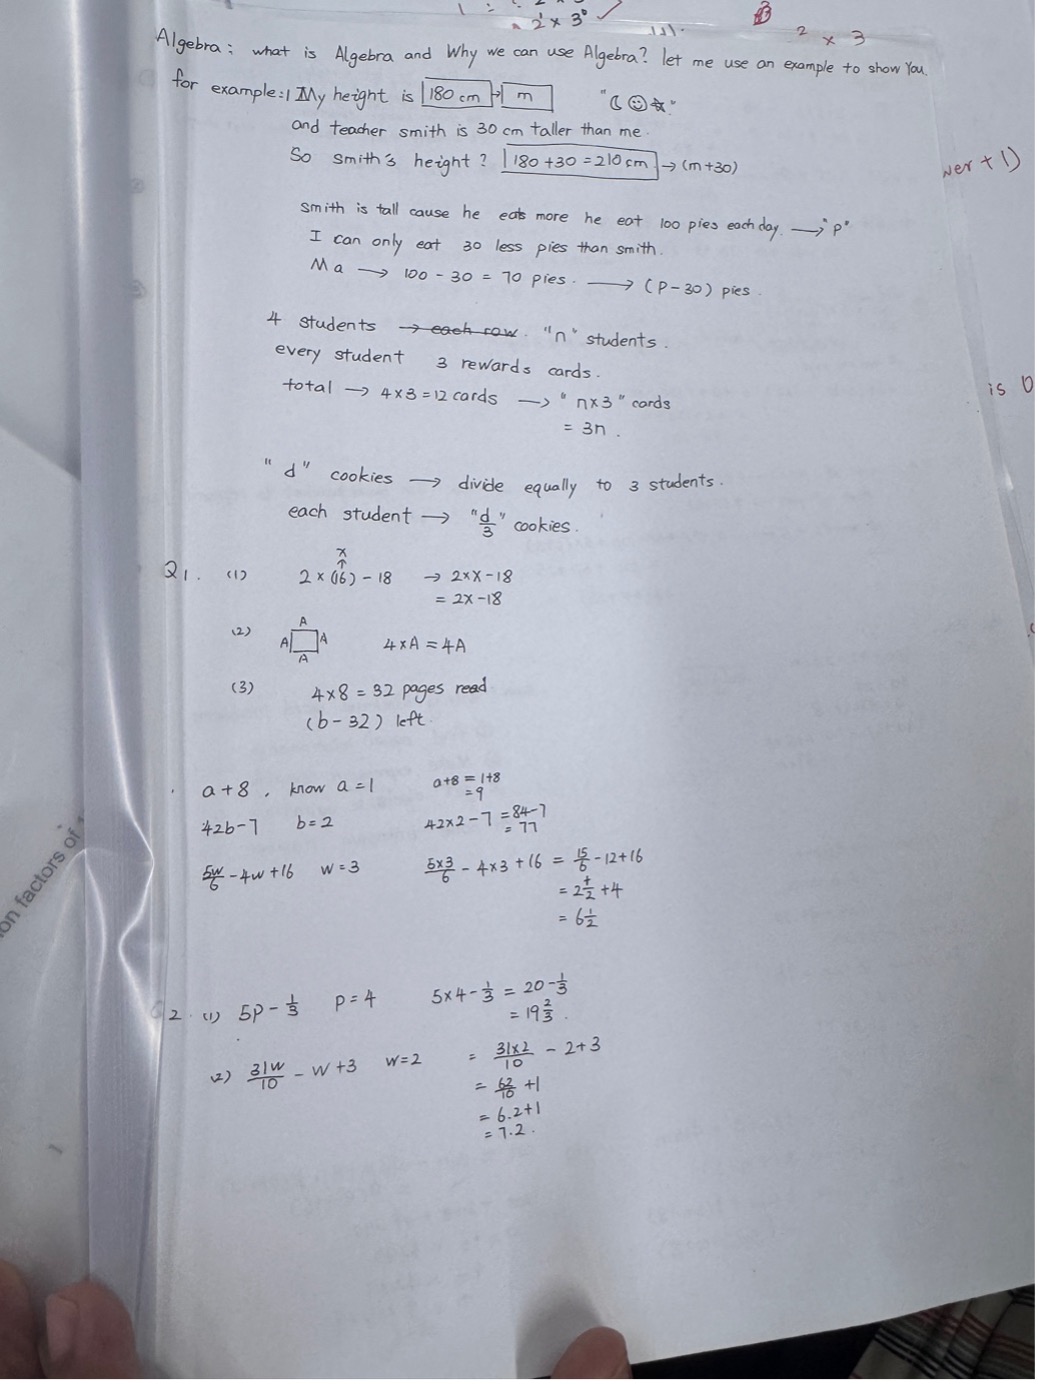 2¹ × 3⁰ ✓
2 × 3
Algebra : what is Algebra and Why we can use Algebra? let me use an example to show You.
for example:1 My height is 180 cm → m "☾☺☆"
and teacher smith is 30 cm taller than me.
So smith's height? 180 + 30 = 210 cm → (m+30)
wer + 1)
smith is tall cause he eats more he eat 100 pies each day. → "p"
I can only eat 30 less pies than smith.
Ma → 100 - 30 = 70 pies. → (P-30) pies.
4 students → each row. "n" students.
every student 3 rewards cards.
total → 4×3 = 12 cards → "n×3" cards
is
= 3n.
"d" cookies → divide equally to 3 students.
each student → "d/3" cookies.
x
↑
Q1. (1) 2 × (16) - 18 → 2×x-18
= 2x-18
(2) A A A A 4×A = 4A
(3) 4×8 = 32 pages read
(b-32) left.
a+8, know a=1 a+8 = 1+8
= 9
42b-7 b=2 42×2-7 = 84-7
= 77
5w/6 - 4w+16 w=3 5×3/6 - 4×3+16 = 15/6 - 12+16
= 2 1/2 + 4
= 6 1/2
2. (1) 5p - 1/3 p=4 5×4 - 1/3 = 20 - 1/3
= 19 2/3.
(2) 31w/10 - w+3 w=2 = 31×2/10 - 2+3
= 62/10 + 1
= 6.2+1
= 7.2.
on factors of